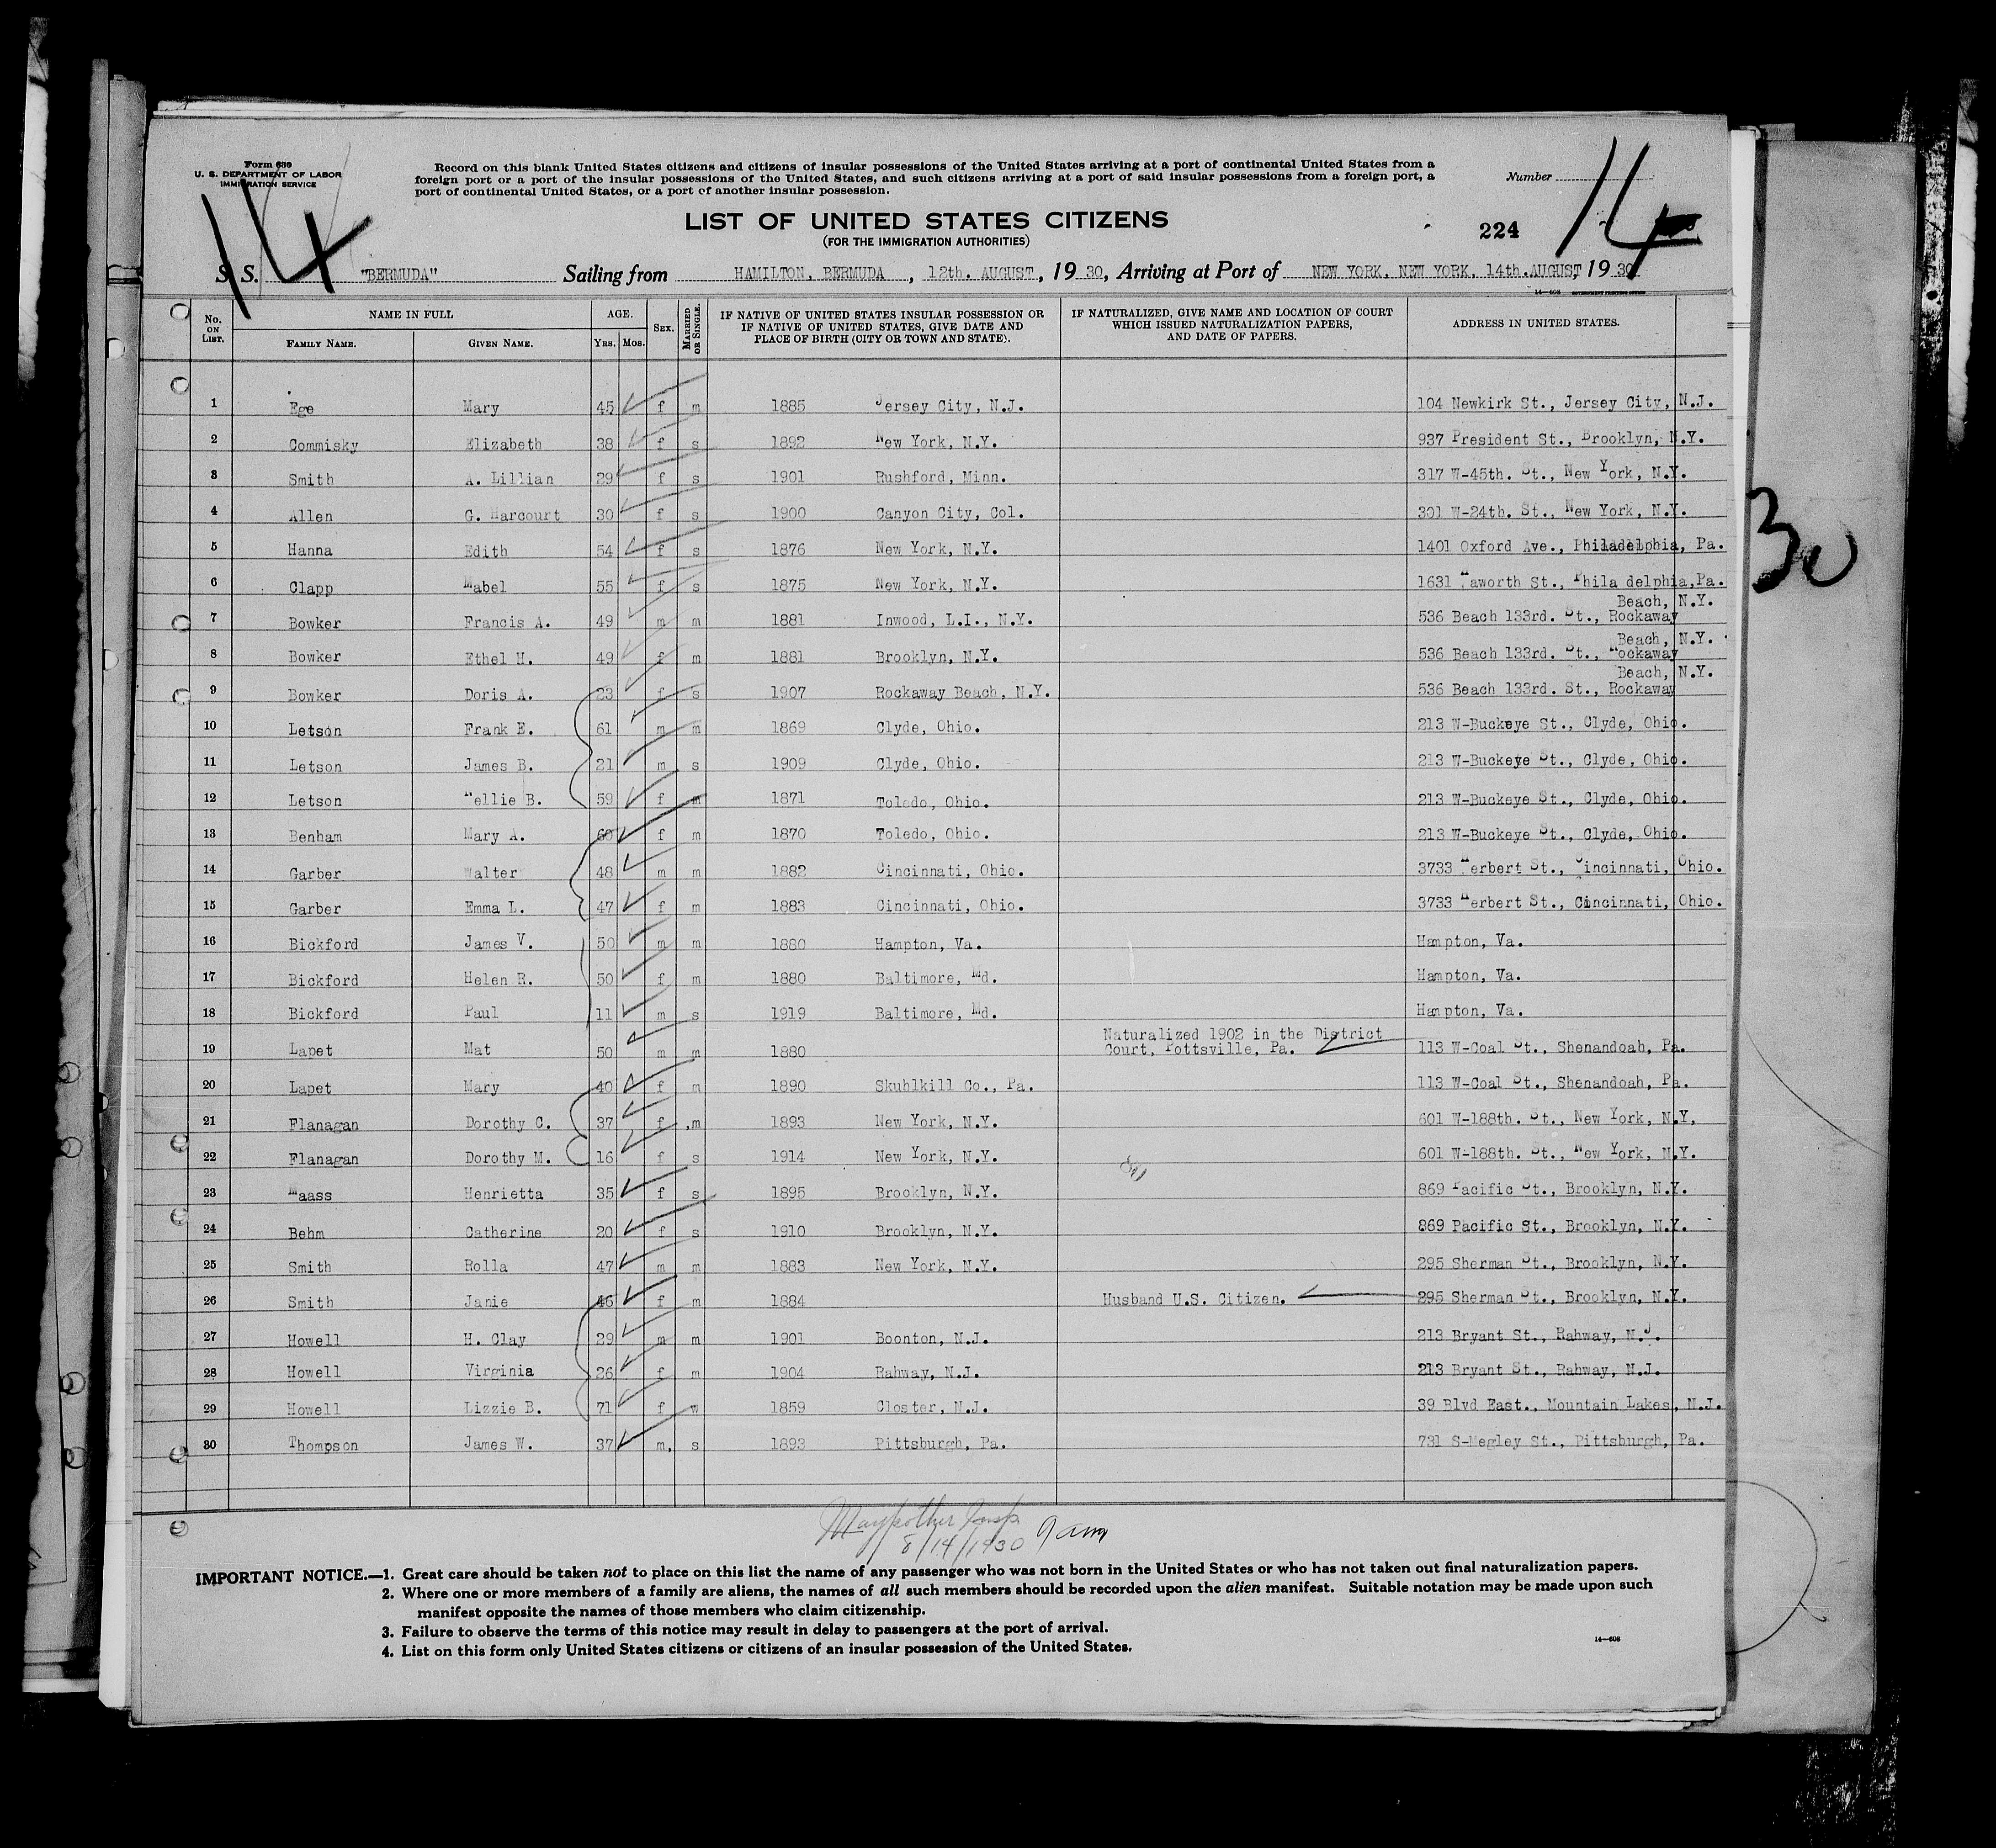 Form 630
U. S. DEPARTMENT OF LABOR
IMMIGRATION SERVICE
Record on this blank United States citizens and citizens of insular possessions of the United States arriving at a port of continental United States from a
foreign port or a port of the insular possessions of the United States, and such citizens arriving at a port of said insular possessions from a foreign port, a
port of continental United States, or a port of another insular possession.
Number
14
14
LIST OF UNITED STATES CITIZENS
(FOR THE IMMIGRATION AUTHORITIES)
224
S. S. "BERMUDA" Sailing from HAMILTON, BERMUDA, 12th. AUGUST, 1930, Arriving at Port of NEW YORK, NEW YORK, 14th. AUGUST, 1930
14—608 GOVERNMENT PRINTING OFFICE
No. ON LIST. NAME IN FULL FAMILY NAME. GIVEN NAME. AGE. YRS. MOS. SEX. MARRIED OR SINGLE. IF NATIVE OF UNITED STATES INSULAR POSSESSION OR IF NATIVE OF UNITED STATES, GIVE DATE AND PLACE OF BIRTH (CITY OR TOWN AND STATE). IF NATURALIZED, GIVE NAME AND LOCATION OF COURT WHICH ISSUED NATURALIZATION PAPERS, AND DATE OF PAPERS. ADDRESS IN UNITED STATES.
1 Ege Mary 45 f m 1885 Jersey City, N.J. 104 Newkirk St., Jersey City, N.J.
2 Commisky Elizabeth 38 f s 1892 New York, N.Y. 937 President St., Brooklyn, N.Y.
3 Smith A. Lillian 29 f s 1901 Rushford, Minn. 317 W-45th. St., New York, N.Y.
4 Allen G. Harcourt 30 f s 1900 Canyon City, Col. 301 W-24th. St., New York, N.Y.
5 Hanna Edith 54 f s 1876 New York, N.Y. 1401 Oxford Ave., Philadelphia, Pa.
6 Clapp Mabel 55 f s 1875 New York, N.Y. 1631 Haworth St., Phila delphia, Pa.
7 Bowker Francis A. 49 m m 1881 Inwood, L.I., N.Y. 536 Beach 133rd. St., Rockaway Beach, N.Y.
8 Bowker Ethel H. 49 f m 1881 Brooklyn, N.Y. 536 Beach 133rd. St., Rockaway Beach, N.Y.
9 Bowker Doris A. 23 f s 1907 Rockaway Beach, N.Y. 536 Beach 133rd. St., Rockaway Beach, N.Y.
10 Letson Frank E. 61 m m 1869 Clyde, Ohio. 213 W-Buckeye St., Clyde, Ohio.
11 Letson James B. 21 m s 1909 Clyde, Ohio. 213 W-Buckeye St., Clyde, Ohio.
12 Letson Nellie B. 59 f m 1871 Toledo, Ohio. 213 W-Buckeye St., Clyde, Ohio.
13 Benham Mary A. 60 f m 1870 Toledo, Ohio. 213 W-Buckeye St., Clyde, Ohio.
14 Garber Walter 48 m m 1882 Cincinnati, Ohio. 3733 Herbert St., Cincinnati, Ohio.
15 Garber Emma L. 47 f m 1883 Cincinnati, Ohio. 3733 Herbert St., Cincinnati, Ohio.
16 Bickford James V. 50 m m 1880 Hampton, Va. Hampton, Va.
17 Bickford Helen R. 50 f m 1880 Baltimore, Md. Hampton, Va.
18 Bickford Paul 11 m s 1919 Baltimore, Md. Hampton, Va.
19 Lapet Mat 50 m m 1880 Naturalized 1902 in the District Court, Pottsville, Pa. 113 W-Coal St., Shenandoah, Pa.
20 Lapet Mary 40 f m 1890 Skuhlkill Co., Pa. 113 W-Coal St., Shenandoah, Pa.
21 Flanagan Dorothy C. 37 f m 1893 New York, N.Y. 601 W-188th. St., New York, N.Y,
22 Flanagan Dorothy M. 16 f s 1914 New York, N.Y. 601 W-188th. St., New York, N.Y.
23 Maass Henrietta 35 f s 1895 Brooklyn, N.Y. 869 Pacific St., Brooklyn, N.Y.
24 Behm Catherine 20 f s 1910 Brooklyn, N.Y. 869 Pacific St., Brooklyn, N.Y.
25 Smith Rolla 47 m m 1883 New York, N.Y. 295 Sherman St., Brooklyn, N.Y.
26 Smith Janie 46 f m 1884 Husband U.S. Citizen. 295 Sherman St., Brooklyn, N.Y.
27 Howell H. Clay 29 m m 1901 Boonton, N.J. 213 Bryant St., Rahway, N.J.
28 Howell Virginia 26 f m 1904 Rahway, N.J. 213 Bryant St., Rahway, N.J.
29 Howell Lizzie B. 71 f w 1859 Closter, N.J. 39 Blvd East., Mountain Lakes, N.J.
30 Thompson James W. 37 m, s 1893 Pittsburgh, Pa. 731 S-Megley St., Pittsburgh, Pa.
30
Insp. 9 am
8/14/1930
IMPORTANT NOTICE.—1. Great care should be taken not to place on this list the name of any passenger who was not born in the United States or who has not taken out final naturalization papers.
2. Where one or more members of a family are aliens, the names of all such members should be recorded upon the alien manifest. Suitable notation may be made upon such
manifest opposite the names of those members who claim citizenship.
3. Failure to observe the terms of this notice may result in delay to passengers at the port of arrival.
4. List on this form only United States citizens or citizens of an insular possession of the United States.
14—608